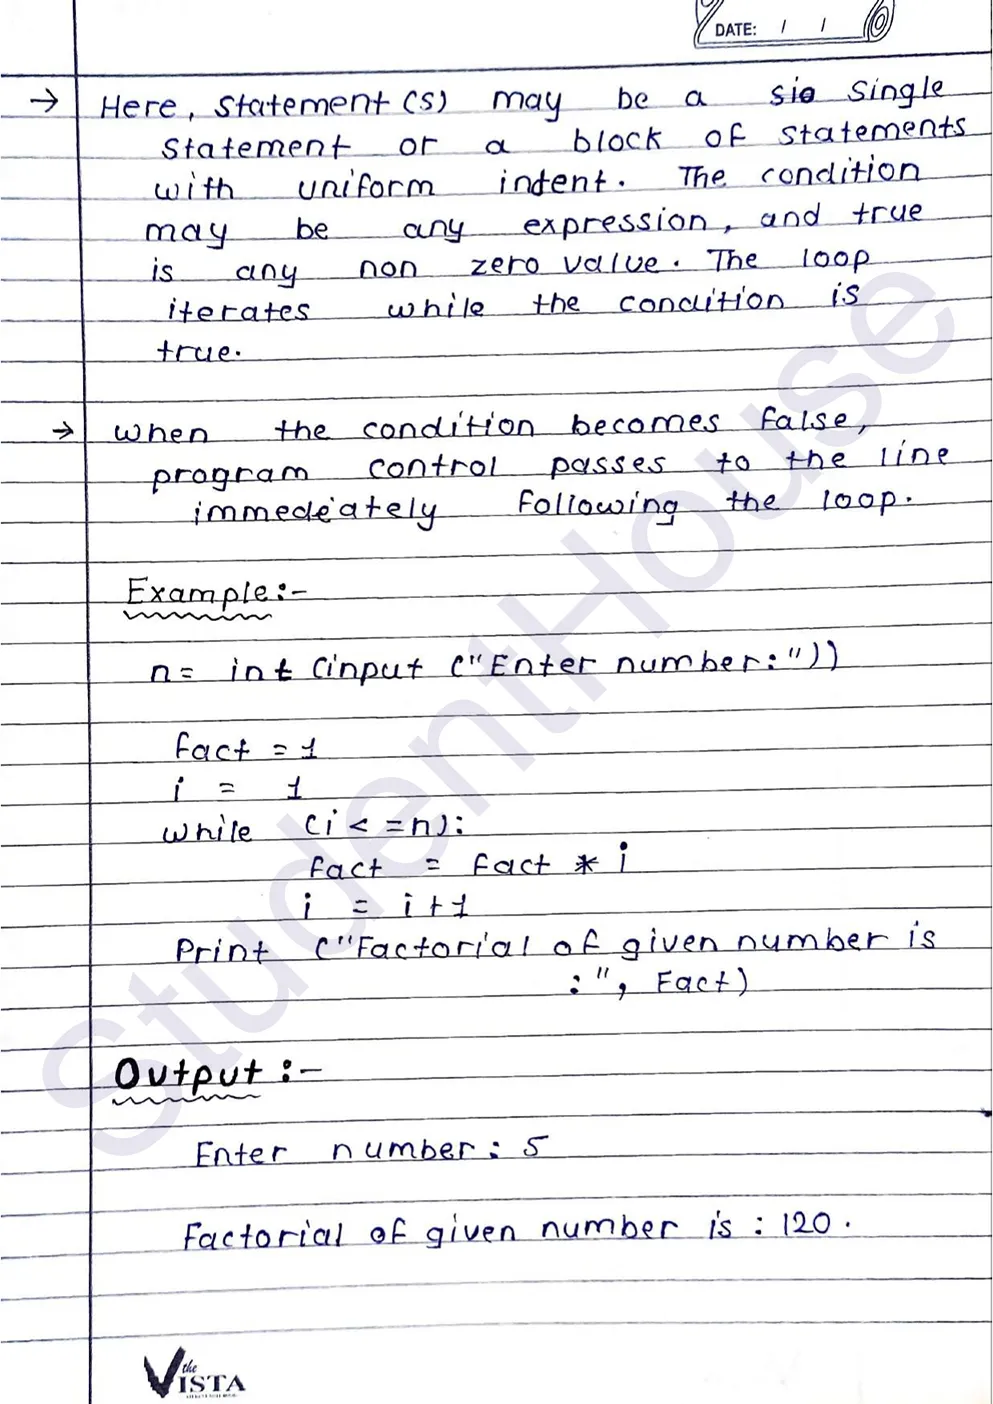 DATE: / /
→ Here, statement (s) may be a sio single
statement or a block of statements
with uniform indent. The condition
may be any expression, and true
is any non zero value. The loop
iterates while the condition is
true.
→ when the condition becomes false,
program control passes to the line
immedeiately following the loop.
Example:-
n= int (input ("Enter number:"))
fact = 1
i = 1
while (i < =n):
fact = fact * i
i = i+1
Print ("Factorial of given number is
:", Fact)
Output :-
Enter number: 5
Factorial of given number is : 120.
the
VISTA
StudentHouse